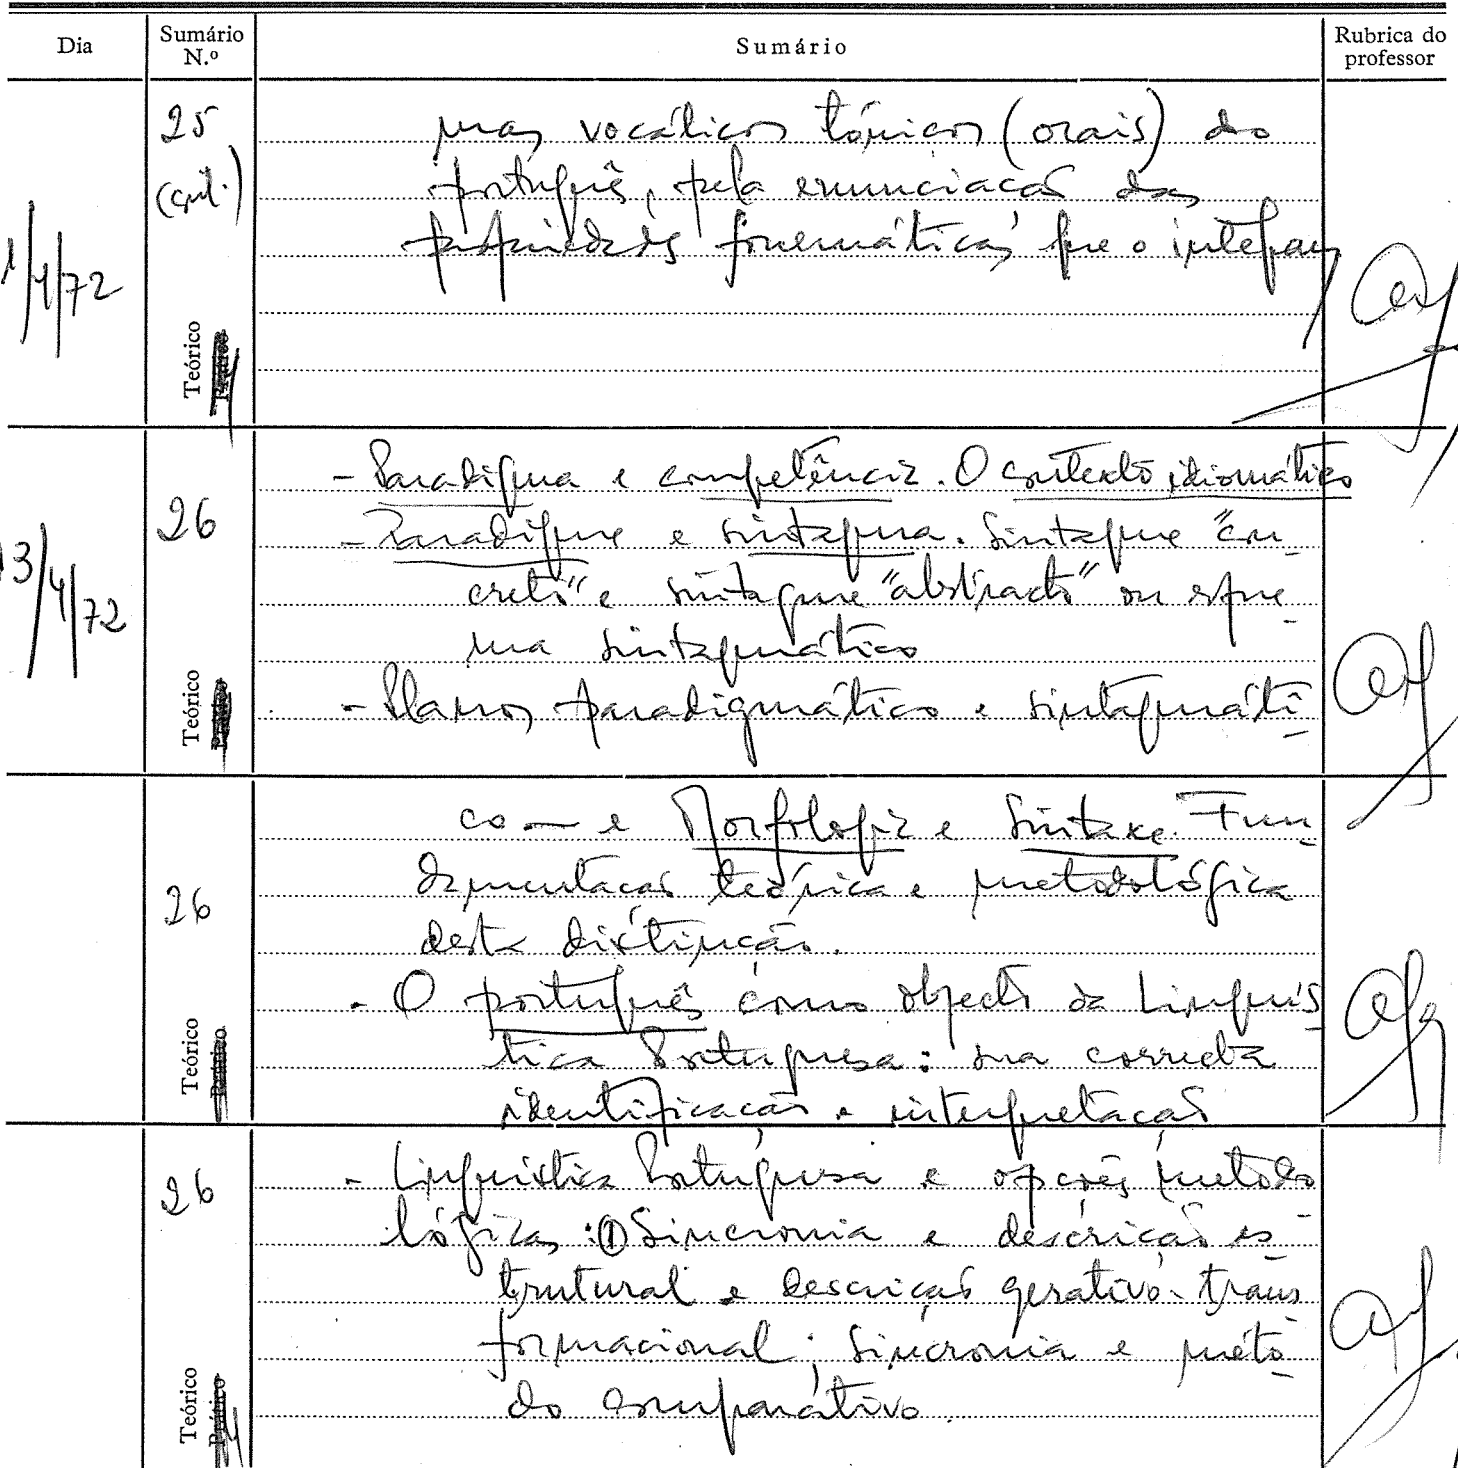 Dia
Sumário N.º
Sumário
Rubrica do professor
25
(cont.)
1/4/72
mas vocálicos tónicos (orais) do
português, pela enunciação das
propriedades fonemáticas que o integram
Teórico
26
13/4/72
- Paradigma e competência. O contexto idiomático
- Paradigma e sintagma. Sintagma "con-
creto" e sintagma "abstracto" ou esque-
ma sintagmático
- Planos paradigmático e sintagmáti-
Teórico
26
co — e Morfologia e Sintaxe. Fun-
damentação teórica e metodológica
desta distinção.
- O português como objecto da Linguís-
tica Portuguesa: sua correcta
identificação e interpretação
Teórico
26
- Linguística Portuguesa e opções metodo-
lógicas: ① Sincronia e descrição es-
trutural e descrição gerativo-trans-
formacional; Sincronia e méto-
do comparativo.
Teórico